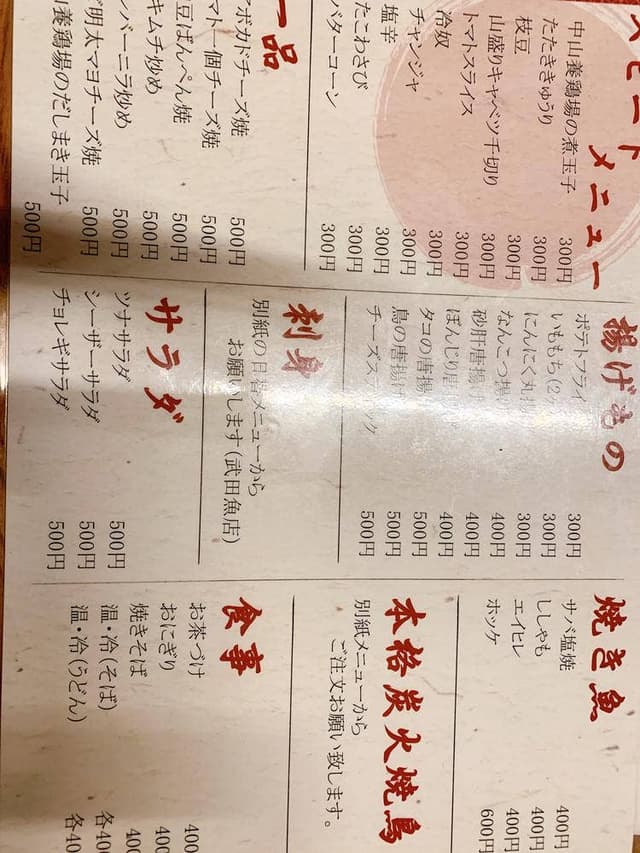 スピードメニュー
中山養鶏場の煮玉子 300円
たたききゅうり 300円
枝豆 300円
山盛りキャベツ千切り 300円
トマトスライス 300円
冷奴 300円
チャンジャ 300円
塩辛 300円
たこわさび 300円
バターコーン 300円
一品
アボカドチーズ焼 500円
マト一個チーズ焼 500円
豆ぽんぺん焼 500円
キムチ炒め 500円
バーニラ炒め 500円
明太マヨチーズ焼 500円
養鶏場のだしまき玉子 500円
揚げもの
ポテトフライ 300円
いももち(2 300円
にんにく丸 300円
なんこつ揚 400円
砂肝唐揚 400円
ぼんじり唐 400円
タコの唐揚 500円
鳥の唐揚げ 500円
チーズスティック 500円
刺身
別紙の日替メニューから
お願いします(武田魚店)
サラダ
ツナサラダ 500円
シーザーサラダ 500円
チョレギサラダ 500円
焼き魚
サバ塩焼 400円
ししゃも 400円
エイヒレ 400円
ホッケ 600円
本格炭火焼鳥
別紙メニューから
ご注文お願い致します。
食事
お茶づけ 400
おにぎり 400
焼きそば 400
温・冷(そば) 各40
温・冷(うどん) 各40